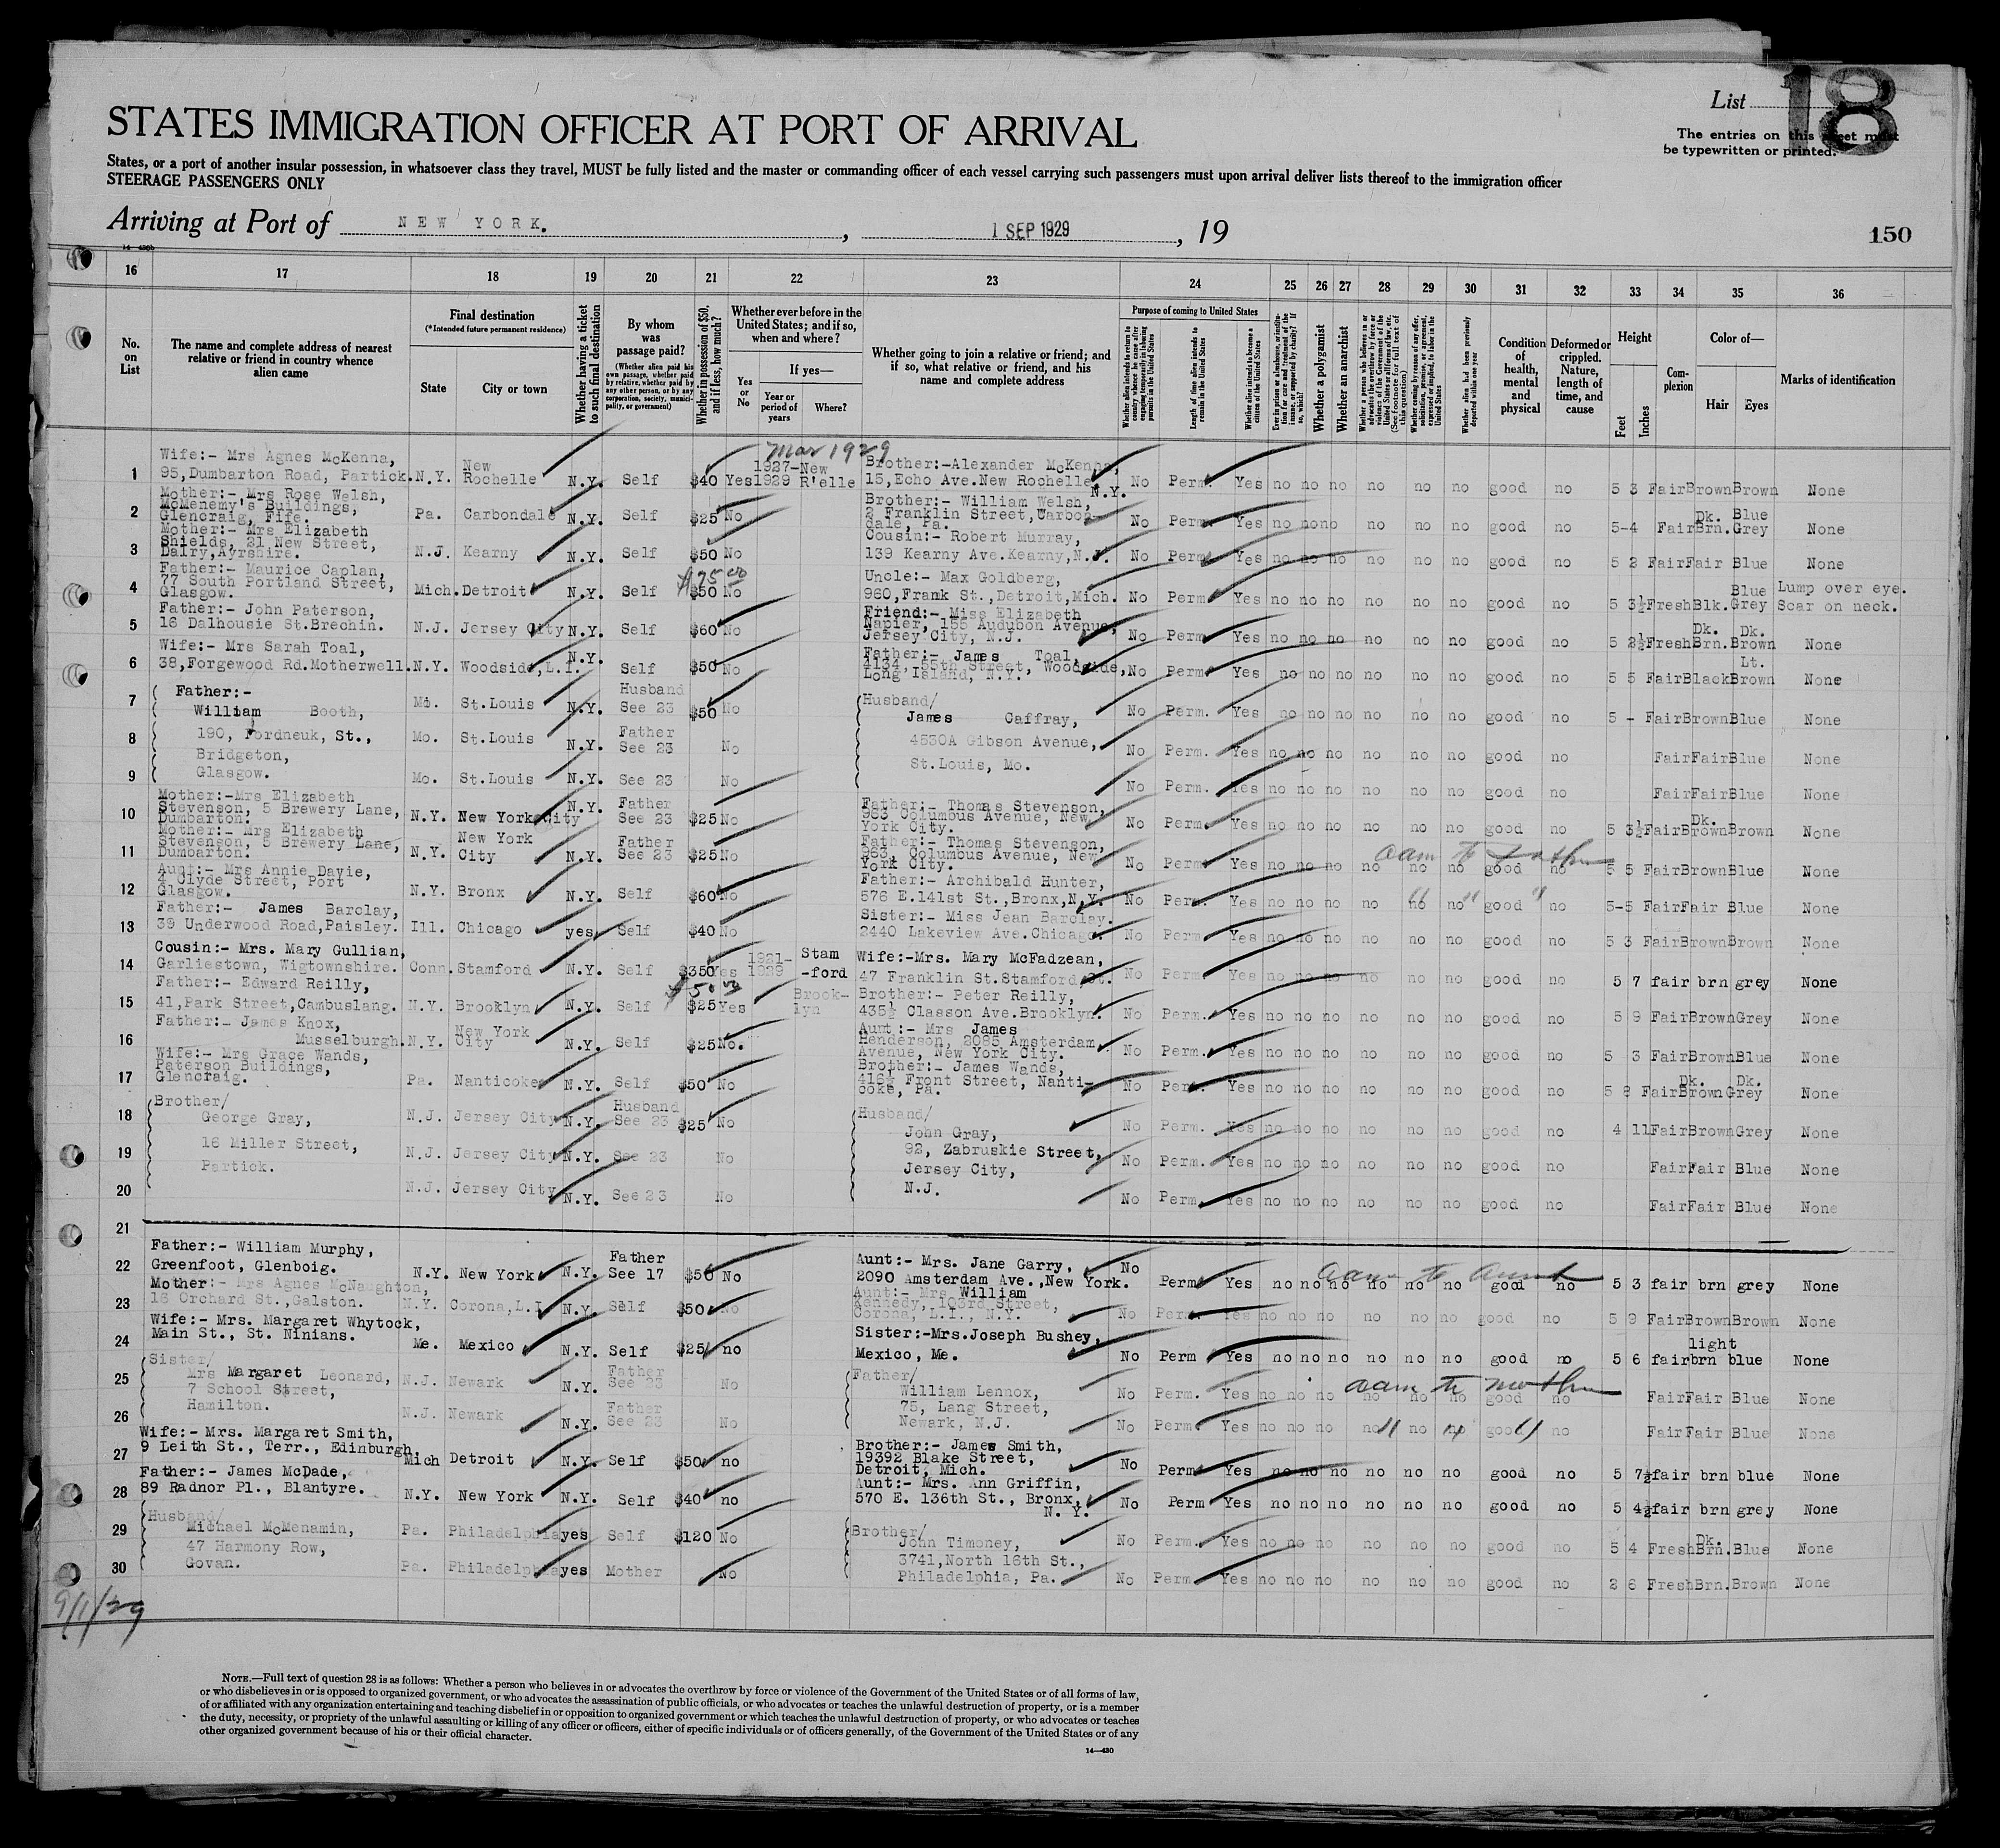 List 18
STATES IMMIGRATION OFFICER AT PORT OF ARRIVAL
The entries on this sheet must
be typewritten or printed.
States, or a port of another insular possession, in whatsoever class they travel, MUST be fully listed and the master or commanding officer of each vessel carrying such passengers must upon arrival deliver lists thereof to the immigration officer
STEERAGE PASSENGERS ONLY
Arriving at Port of NEW YORK. , 1 SEP 1929 , 19
150
16 17 18 19 20 21 22 23 24 25 26 27 28 29 30 31 32 33 34 35 36
No. on List
The name and complete address of nearest relative or friend in country whence alien came
Final destination
(*Intended future permanent residence)
State
City or town
Whether having a ticket to such final destination
By whom was passage paid?
(Whether alien paid his own passage, whether paid by relative, whether paid by any other person, or by any corporation, society, municipality, or government)
Whether in possession of $50, and if less, how much?
Whether ever before in the United States; and if so, when and where?
Yes or No
If yes—
Year or period of years
Where?
Whether going to join a relative or friend; and if so, what relative or friend, and his name and complete address
Purpose of coming to United States
Whether alien intends to return to country whence he came after engaging temporarily in laboring pursuits in the United States
Length of time alien intends to remain in the United States
Whether alien intends to become a citizen of the United States
Ever in prison or almshouse, or institution for care and treatment of the insane, or supported by charity? If so, which?
Whether a polygamist
Whether an anarchist
Whether a person who believes in or advocates the overthrow by force or violence of the Government of the United States or all forms of law, etc. (See footnote for full text of this question)
Whether coming by reason of any offer, solicitation, promise, or agreement, expressed or implied, to labor in the United States
Whether alien had been previously deported within one year
Condition of health, mental and physical
Deformed or crippled. Nature, length of time, and cause
Height
Feet
Inches
Complexion
Color of—
Hair
Eyes
Marks of identification
Mar 1929
1 Wife:- Mrs Agnes McKenna, 95,Dumbarton Road, Partick. N.Y. New Rochelle N.Y. Self $40 Yes 1927-1929 New R'elle Brother:-Alexander McKenna, 15,Echo Ave.New Rochelle, N.Y. No Perm. Yes no no no no no no good no 5 3 Fair Brown Brown None
2 Mother:- Mrs Rose Welsh, McMenemy's Buildings, Glencraig, Fife. Pa. Carbondale N.Y. Self $25 No Brother:- William Welsh, 2 Franklin Street,Carbondale, Pa. No Perm. Yes no no no no no no good no 5-4 Fair Dk. Brn. Blue Grey None
3 Mother:- Mrs Elizabeth Shields, 21 New Street, Dalry,Ayrshire. N.J. Kearny N.Y. Self $50 No Cousin:- Robert Murray, 139 Kearny Ave.Kearny,N.J. No Perm. Yes no no no no no no good no 5 2 Fair Fair Blue None
4 Father:- Maurice Caplan, 77 South Portland Street, Glasgow. Mich. Detroit N.Y. Self $75 00 $50 No Uncle:- Max Goldberg, 960,Frank St.,Detroit,Mich. No Perm. Yes no no no no no no good no 5 3½ Fresh Blk. Blue Grey Lump over eye. Scar on neck.
5 Father:- John Paterson, 16 Dalhousie St.Brechin. N.J. Jersey City N.Y. Self $60 No Friend:- Miss Elizabeth Napier, 155 Audubon Avenue, Jersey City, N.J. No Perm. Yes no no no no no no good no 5 2½ Fresh Dk. Brn. Dk. Brown None
6 Wife:- Mrs Sarah Toal, 38,Forgewood Rd.Motherwell. N.Y. Woodside,L.I. N.Y. Self $50 No Father:- James Toal, 4134,-55th Street, Woodside, Long Island, N.Y. No Perm. Yes no no no no no no good no 5 5 Fair Black Lt. Brown None
7 Father:- William Booth, Mo. St.Louis N.Y. Husband See 23 $50 No Husband/ James Caffray, No Perm. Yes no no no no no no good no 5 - Fair Brown Blue None
8 190, Fordneuk, St., Bridgeton, Mo. St.Louis N.Y. Father See 23 No 4530A Gibson Avenue, St.Louis, Mo. No Perm. Yes no no no no no no good no Fair Fair Blue None
9 Glasgow. Mo. St.Louis N.Y. See 23 No No Perm. Yes no no no no no no good no Fair Fair Blue None
10 Mother:-Mrs Elizabeth Stevenson, 5 Brewery Lane, Dumbarton. N.Y. New York City N.Y. Father See 23 $25 No Father:- Thomas Stevenson, 963 Columbus Avenue, New York City. No Perm. Yes no no no no no no good no 5 3½ Fair Dk. Brown Brown None
11 Mother:- Mrs Elizabeth Stevenson, 5 Brewery Lane, Dumbarton. N.Y. New York City N.Y. Father See 23 $25 No Father:- Thomas Stevenson, 963, Columbus Avenue, New York City. No Perm. Yes no no no no no no good no to father 5 5 Fair Brown Blue None
12 Aunt:- Mrs Annie Davie, 4 Clyde Street, Port Glasgow. N.Y. Bronx N.Y. Self $60 No Father:- Archibald Hunter, 576 E.141st St.,Bronx,N.Y. No Perm. Yes no no no no no no good no " " " 5-5 Fair Fair Blue None
13 Father:- James Barclay, 39 Underwood Road,Paisley. Ill. Chicago yes Self $40 No Sister:- Miss Jean Barclay. 2440 Lakeview Ave.Chicago. No Perm. Yes no no no no no no good no 5 3 Fair Brown Brown None
14 Cousin:- Mrs. Mary Gullian, Garliestown, Wigtownshire. Conn. Stamford N.Y. Self $350 Yes 1921-1929 Stam-ford Wife:-Mrs. Mary McFadzean, 47 Franklin St.Stamford Ct. No Perm. Yes no no no no no no good no 5 7 fair brn grey None
15 Father:- Edward Reilly, 41,Park Street,Cambuslang. N.Y. Brooklyn N.Y. Self $50 00 $25 Yes Brook-lyn Brother:- Peter Reilly, 435½ Classon Ave.Brooklyn. No Perm. Yes no no no no no no good no 5 9 Fair Brown Grey None
16 Father:- James Knox, Musselburgh. N.Y. New York City N.Y. Self $25 No. Aunt:- Mrs James Henderson, 2085 Amsterdam Avenue, New York City. No Perm. Yes no no no no no no good no 5 3 Fair Brown Blue None
17 Wife:- Mrs Grace Wands, Paterson Buildings, Glencraig. Pa. Nanticoke N.Y. Self $50 No Brother:- James Wands, 416½ Front Street, Nanticoke, Pa. No Perm. Yes no no no no no no good no 5 8 Fair Dk. Brown Dk. Grey None
18 Brother/ George Gray, N.J. Jersey City N.Y. Husband See 23 $25 No Husband/ John Gray, No Perm. Yes no no no no no no good no 4 11 Fair Brown Grey None
19 16 Miller Street, Partick. N.J. Jersey City N.Y. See 23 No 92, Zabruskie Street, Jersey City, No Perm. Yes no no no no no no good no Fair Fair Blue None
20 N.J. Jersey City N.Y. See 23 No N.J. No Perm. Yes no no no no no no good no Fair Fair Blue None
21
22 Father:- William Murphy, Greenfoot, Glenboig. N.Y. New York N.Y. Father See 17 $50 No Aunt:- Mrs. Jane Garry, 2090 Amsterdam Ave.,New York. No Perm Yes no no no no no no good no to aunt 5 3 fair brn grey None
23 Mother:- Mrs Agnes McNaughton, 18 Orchard St.,Galston. N.Y. Corona,L.I. N.Y. Self $50 No Aunt:- Mrs William Kennedy, 103rd Street, Corona, L.I., N.Y. No Perm. Yes no no no no no no good no 5 9 Fair Brown Brown None
24 Wife:- Mrs. Margaret Whytock, Main St., St. Ninians. Me. Mexico N.Y. Self $25 no Sister:-Mrs.Joseph Bushey, Mexico, Me. No Perm Yes no no no no no no good no 5 6 fair light brn blue None
25 Sister/ Mrs Margaret Leonard, 7 School Street, N.J. Newark N.Y. Father See 23 No Father/ William Lennox, 75, Lang Street, No Perm. Yes no no no no no no good no to mother Fair Fair Blue None
26 Hamilton. N.J. Newark N.Y. Father See 23 No Newark, N.J. No Perm. Yes no no no no no no good no " " " Fair Fair Blue None
27 Wife:- Mrs. Margaret Smith, 9 Leith St., Terr., Edinburgh, Mich Detroit N.Y. Self $50 no Brother:- James Smith, 19392 Blake Street, Detroit, Mich. No Perm Yes no no no no no no good no 5 7½ fair brn blue None
28 Father:- James McDade, 89 Radnor Pl., Blantyre. N.Y. New York N.Y. Self $40 no Aunt:- Mrs. Ann Griffin, 570 E. 136th St., Bronx, N.Y. No Perm Yes no no no no no no good no 5 4½ fair brn grey None
29 Husband/ Michael McMenamin, 47 Harmony Row, Pa. Philadelphia yes Self $120 No Brother/ John Timoney, 3741,North 16th St., No Perm. Yes no no no no no no good no 5 4 Fresh Dk. Brn. Blue None
30 Govan. Pa. Philadelphia yes Mother No Philadelphia, Pa. No Perm. Yes no no no no no no good no 2 6 Fresh Brn. Brown None
9/1/29
NOTE.—Full text of question 28 is as follows: Whether a person who believes in or advocates the overthrow by force or violence of the Government of the United States or of all forms of law,
or who disbelieves in or is opposed to organized government, or who advocates the assassination of public officials, or who advocates or teaches the unlawful destruction of property, or is a member
of or affiliated with any organization entertaining and teaching disbelief in or opposition to organized government or which teaches the unlawful destruction of property, or who advocates or teaches
the duty, necessity, or propriety of the unlawful assaulting or killing of any officer or officers, either of specific individuals or of officers generally, of the Government of the United States or of any
other organized government because of his or their official character.
14—430